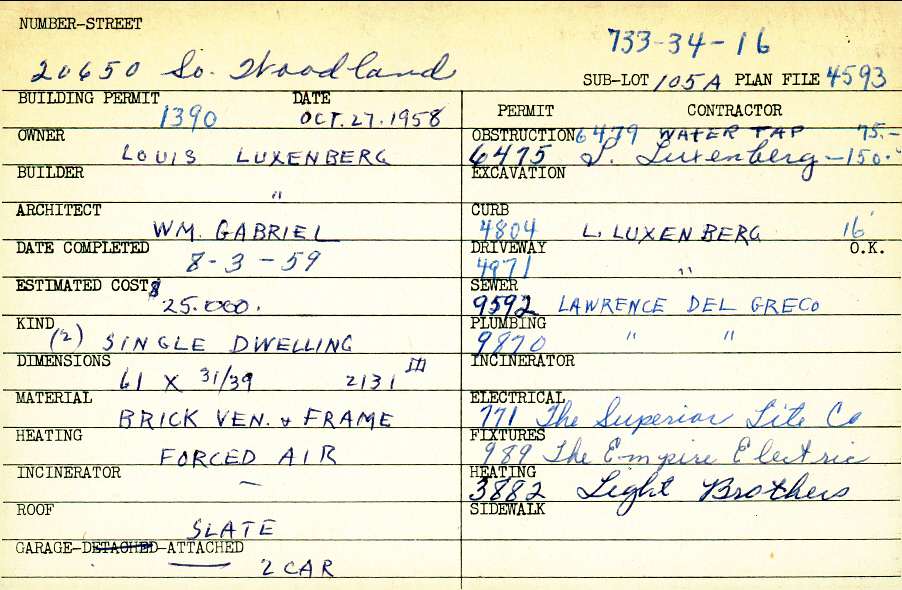 NUMBER-STREET
733-34-16
20650 So. Woodland
SUB-LOT 105A PLAN FILE 4593
BUILDING PERMIT 1390 DATE OCT. 27. 1958
OWNER LOUIS LUXENBERG
BUILDER "
ARCHITECT WM. GABRIEL
DATE COMPLETED 8-3-59
ESTIMATED COST $ 25.000.
KIND (2) SINGLE DWELLING
DIMENSIONS 61 X 31/39 2131
MATERIAL BRICK VEN. & FRAME
HEATING FORCED AIR
INCINERATOR —
ROOF SLATE
GARAGE-DETACHED-ATTACHED 2 CAR
PERMIT CONTRACTOR
OBSTRUCTION 6479 WATER TAP 75.-
6475 L. Luxenberg - 150.-
EXCAVATION
CURB 4804 L. LUXENBERG 16'
DRIVEWAY 4971 " O.K.
SEWER 9592 LAWRENCE DEL GRECO
PLUMBING 9870 " "
INCINERATOR
ELECTRICAL 771 The Superior Lite Co
FIXTURES 989 The Empire Electric
HEATING 3882 Light Brothers
SIDEWALK